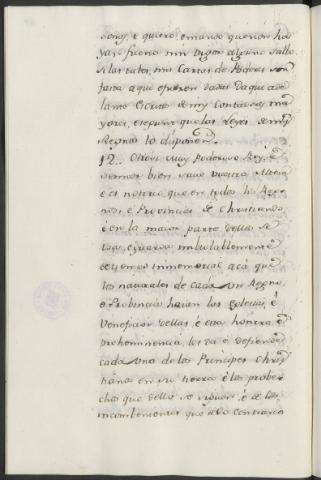 sonas, e quiero, e mando que non ha
yan fuerza nin vigor alguno salbo
si las tales mis Cartas de
fasta aqui dadas daqui ade
lante de mis Contadores ma
yores, segund que las Leyes de mis
Regnos lo disponen.
12.. Otrosi Muy Poderoso Rey, é
Señor bien save Vuestra Alteza
é es notorio que en todos los Reg
nos é Provincias de Christianos,
é en la maior parte dellas se
usa, é guarda imbiolablemente
de tiempo inmemorial acá que
los naturales de cada un Regno,
o Probincia haian las Iglesias, é
Veneficios dellas, é esta honrra é
prehominencia, les da é defiende
cada uno de los Principes Chris
tianos en su tierra é los probe
chos que dello se siguen, é de los
incombenientes que de lo contrario